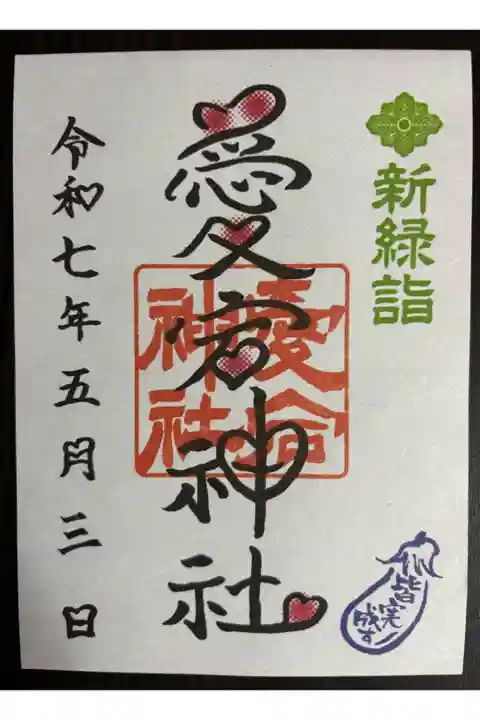 新緑詣
愛宕神社
愛宕
神社
皆実
成す
令和七年五月三日